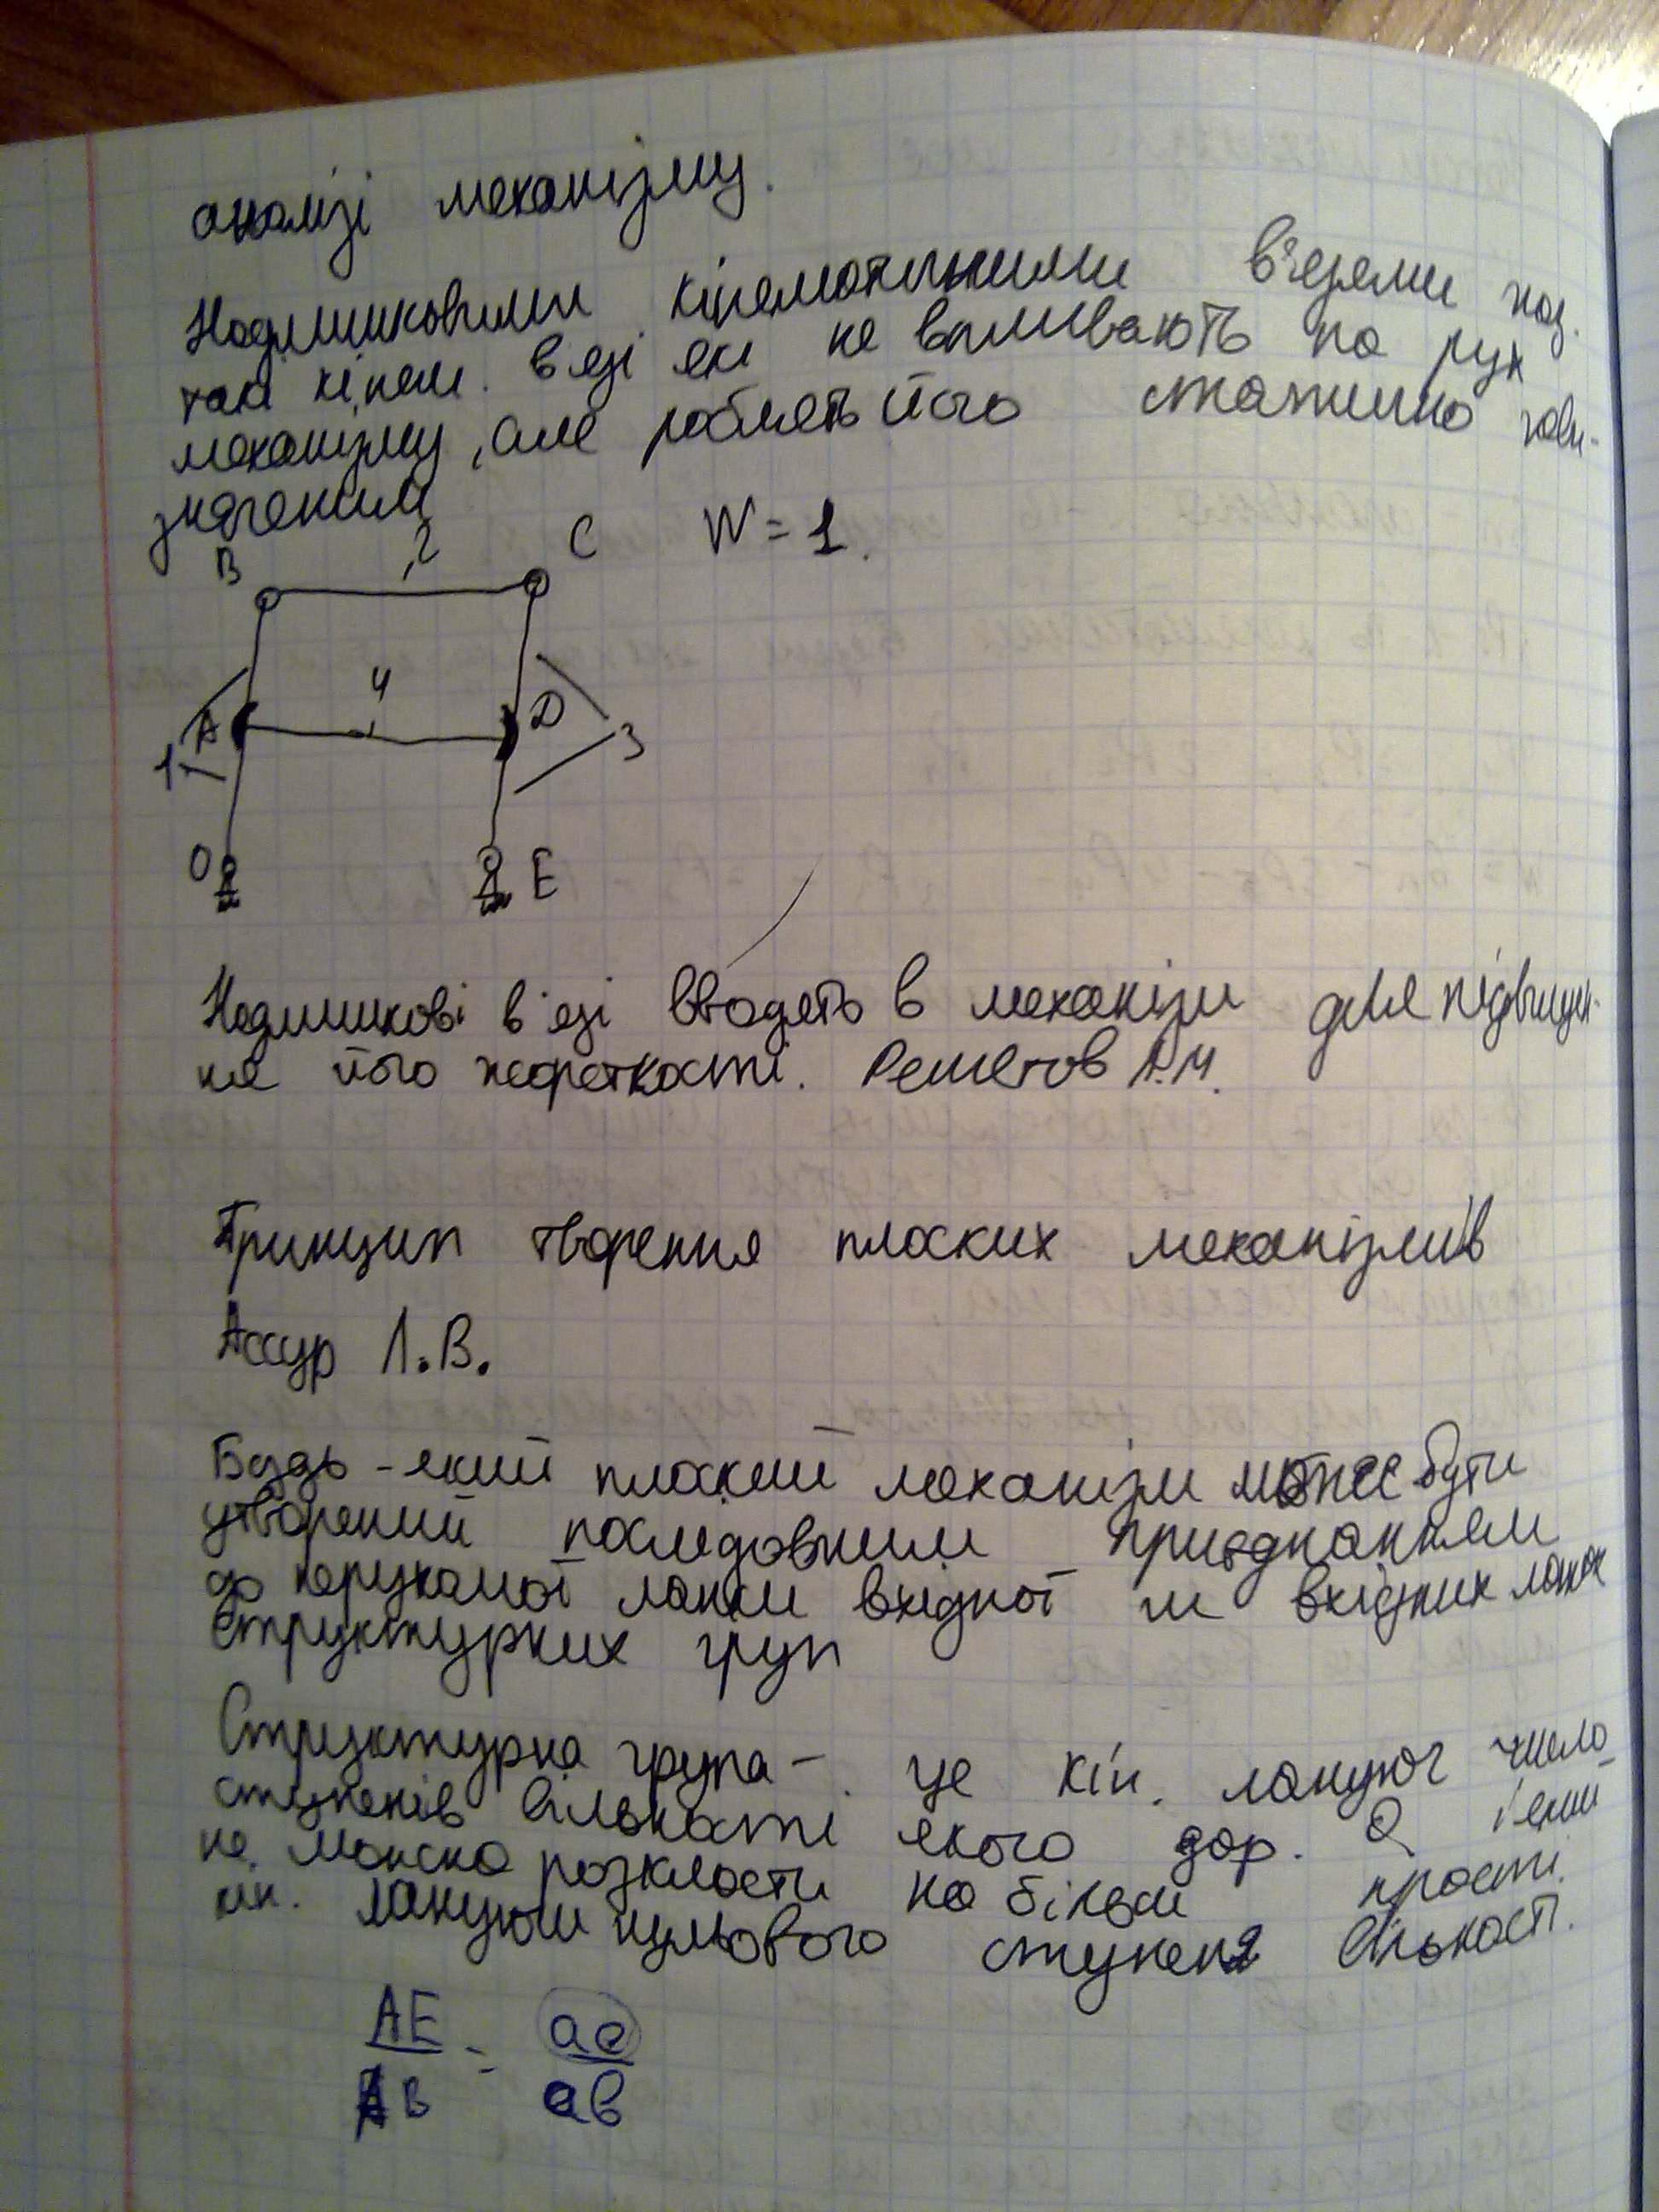 аналізі механізму.
Надлишковими кінематичними в'язями наз.
такі кінем. в'язі які не впливають на рух
механізму, але роблять його статично неви-
значеним
B 2 C W = 1.
4
A D
1 3
O E
Надлишкові в'язі вводять в механізм для підвищен-
ня його жорсткості. Решетов Л.Н.
Принцип творення плоских механізмів
Ассур Л.В.
Будь-який плоский механізм може бути
утворений последовним приєднанням
до нерухомої ланки вхідної и вхідних ланок
структурних груп
Структурна група - це кін. ланцюг число
ступенів вільності якого дор. 0 і який
не можна розкласти на більш прості.
кін. ланцюги нульового ступеня вільності.
AE = ае
AB ав